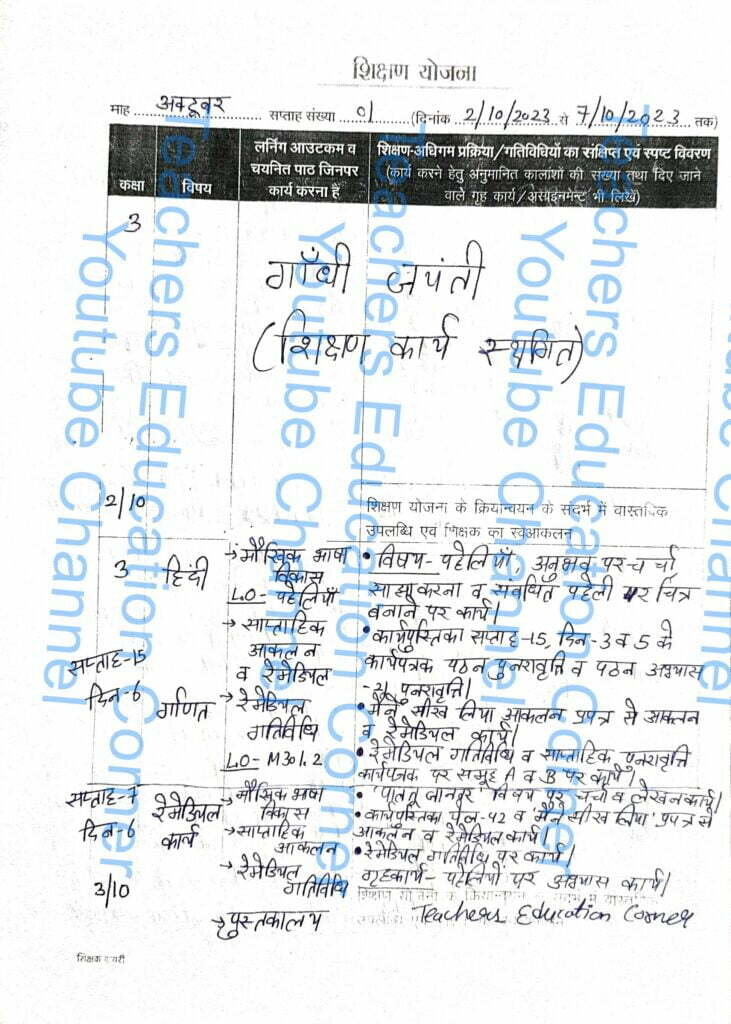 शिक्षण योजना
माह अक्टूबर सप्ताह संख्या 01 (दिनांक 2/10/2023 से 7/10/2023 तक)
कक्षा
विषय
लर्निंग आउटकम व
चयनित पाठ जिनपर
कार्य करना है
शिक्षण-अधिगम प्रक्रिया/गतिविधियों का संक्षिप्त एवं स्पष्ट विवरण
(कार्य करने हेतु अनुमानित कालांशों की संख्या तथा दिए जाने
वाले गृह कार्य/असाइनमेन्ट भी लिखें)
3
गाँधी जयंती
(शिक्षण कार्य स्थगित)
2/10
शिक्षण योजना के क्रियान्वयन के संदर्भ में वास्तविक
उपलब्धि एवं शिक्षक का स्वआकलन
3
हिंदी
→ मौखिक भाषा
विकास
L.O- पहेलियाँ
→ साप्ताहिक
आकलन
व रेमेडियल
• विषय- पहेलियाँ, अनुभव पर चर्चा
साझा करना व संबंधित पहेली पर चित्र
बनाने पर कार्य।
• कार्यपुस्तिका सप्ताह-15, दिन-3 व 5 के
कार्यपत्रक पठन पुनरावृत्ति व पठन अभ्यास
पुनरावृत्ति।
सप्ताह-15
दिन-6
गणित
→ रेमेडियल
गतिविधि
L.O- M301.2
• मैंने सीख लिया आकलन प्रपत्र से आकलन
व रेमेडियल कार्य।
• रेमेडियल गतिविधि व साप्ताहिक पुनरावृत्ति
कार्यपत्रक पर समूह A व B पर कार्य।
सप्ताह-7
दिन-6
रेमेडियल
कार्य
→ मौखिक भाषा
विकास
→ साप्ताहिक
आकलन
→ रेमेडियल
गतिविधि
• 'पालतू जानवर' विषय पर चर्चा व लेखन कार्य।
• कार्यपुस्तिका पेज-42 व 'मैंने सीख लिया' प्रपत्र से
आकलन व रेमेडियल कार्य
• रेमेडियल गतिविधि पर कार्य।
गृहकार्य- पहेलियों पर अभ्यास कार्य।
3/10
→ पुस्तकालय
Teachers Education Corner
शिक्षक डायरी
Teachers Education Corner
Youtube Channel
Teachers Education Corner
Youtube Channel